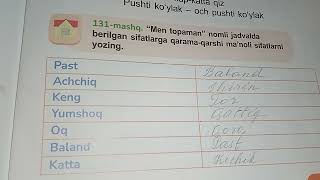 katta qiz
Pushti ko'ylak – och pushti ko'ylak
131-mashq. "Men topaman" nomli jadvalda
berilgan sifatlarga qarama-qarshi ma'noli sifatlarni
yozing.
Past Baland
Achchiq Shirin
Keng Tor
Yumshoq Qattiq
Oq Qora
Baland Past
Katta Kichik